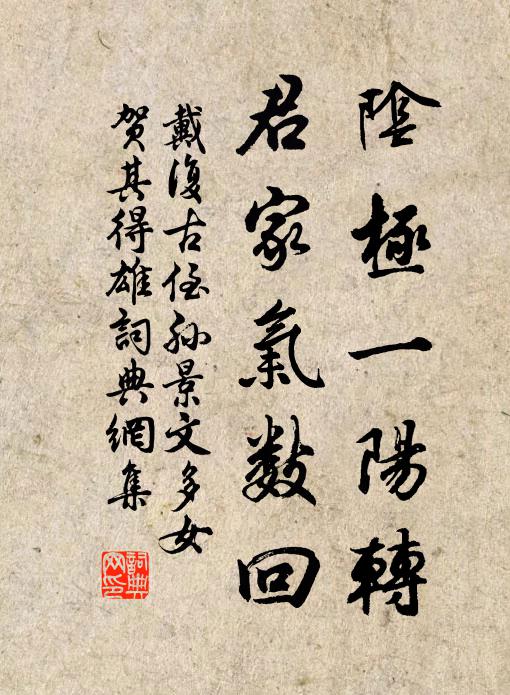 陰極一陽轉
君家氣數回
戴復古侄孫景文多女
賀其得雄詞典網集
詞典网印